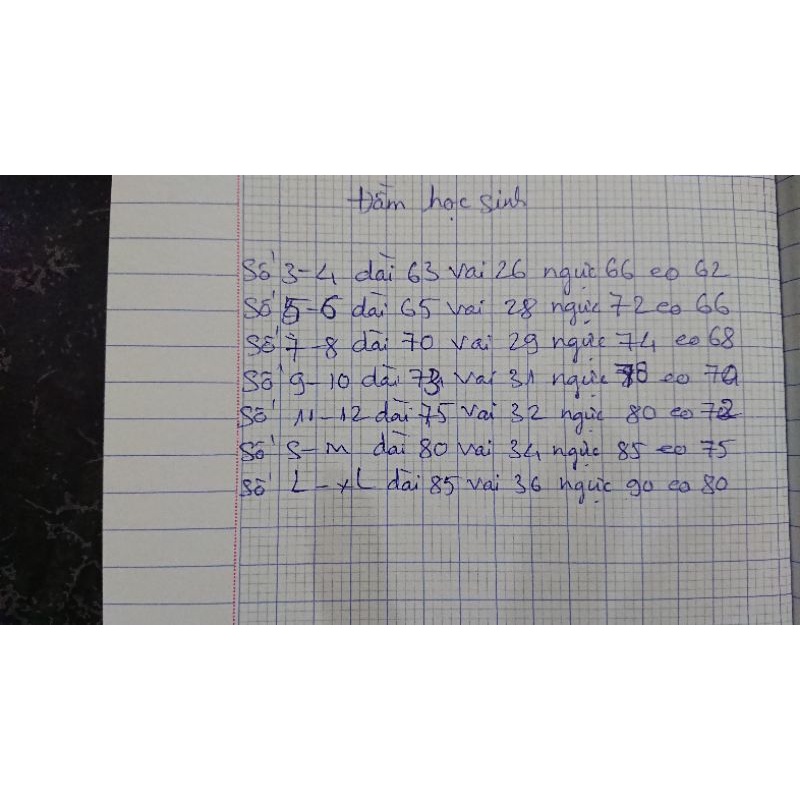 Đầm học sinh
Số 3-4 dài 63 vai 26 ngực 66 eo 62
Số 5-6 dài 65 vai 28 ngực 72 eo 66
Số 7-8 dài 70 vai 29 ngực 74 eo 68
Số 9-10 dài 73 vai 31 ngực eo 70
Số 11-12 dài 75 vai 32 ngực 80 eo 72
Số S-M dài 80 vai 34 ngực 85 eo 75
Số L-XL dài 85 vai 36 ngực 90 eo 80